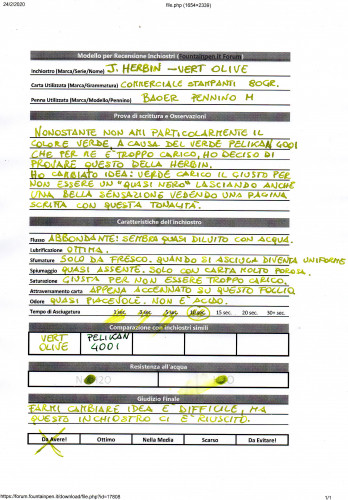 24/2/2020 file.php (1654×2339)
Modello per Recensione Inchiostri (Fountainpen.it Forum)
Inchiostro (Marca/Serie/Nome) J. HERBIN - VERT OLIVE
Carta Utilizzata (Marca/Grammatura) COMMERCIALE STAMPANTI 80GR.
Penna Utilizzata (Marca/Modello/Pennino) BAOER PENNINO M
Prova di scrittura e Osservazioni
NONOSTANTE NON AMI PARTICOLARMENTE IL
COLORE VERDE, A CAUSA DEL VERDE PELIKAN 4001
CHE PER ME È TROPPO CARICO, HO DECISO DI
PROVARE QUESTO DELLA HERBIN.
HO CAMBIATO IDEA: VERDE CARICO IL GIUSTO PER
NON ESSERE UN "QUASI NERO" LASCIANDO ANCHE
UNA BELLA SENSAZIONE VEDENDO UNA PAGINA
SCRITTA CON QUESTA TONALITÀ.
Caratteristiche dell'inchiostro
Flusso ABBONDANTE: SEMBRA QUASI DILUITO CON ACQUA.
Lubrificazione OTTIMA.
Sfumature SOLO DA FRESCO. QUANDO SI ASCIUGA DIVENTA UNIFORME
Spiumaggio QUASI ASSENTE. SOLO CON CARTA MOLTO POROSA.
Saturazione GIUSTA PER NON ESSERE TROPPO CARICO.
Attraversamento carta APPENA ACCENNATO SU QUESTO FOGLIO
Odore QUASI PIACEVOLE. NON È ACIDO.
Tempo di Asciugatura 1 sec. 3 sec. 5 sec. 10 sec. 15 sec. 20 sec. 30+ sec.
Comparazione con inchiostri simili
VERT OLIVE PELIKAN 4001
Resistenza all'acqua
Giudizio Finale
FARMI CAMBIARE IDEA È DIFFICILE, MA
QUESTO INCHIOSTRO CI È RIUSCITO.
Da Avere! Ottimo Nella Media Scarso Da Evitare!
https://forum.fountainpen.it/download/file.php?id=17808 1/1